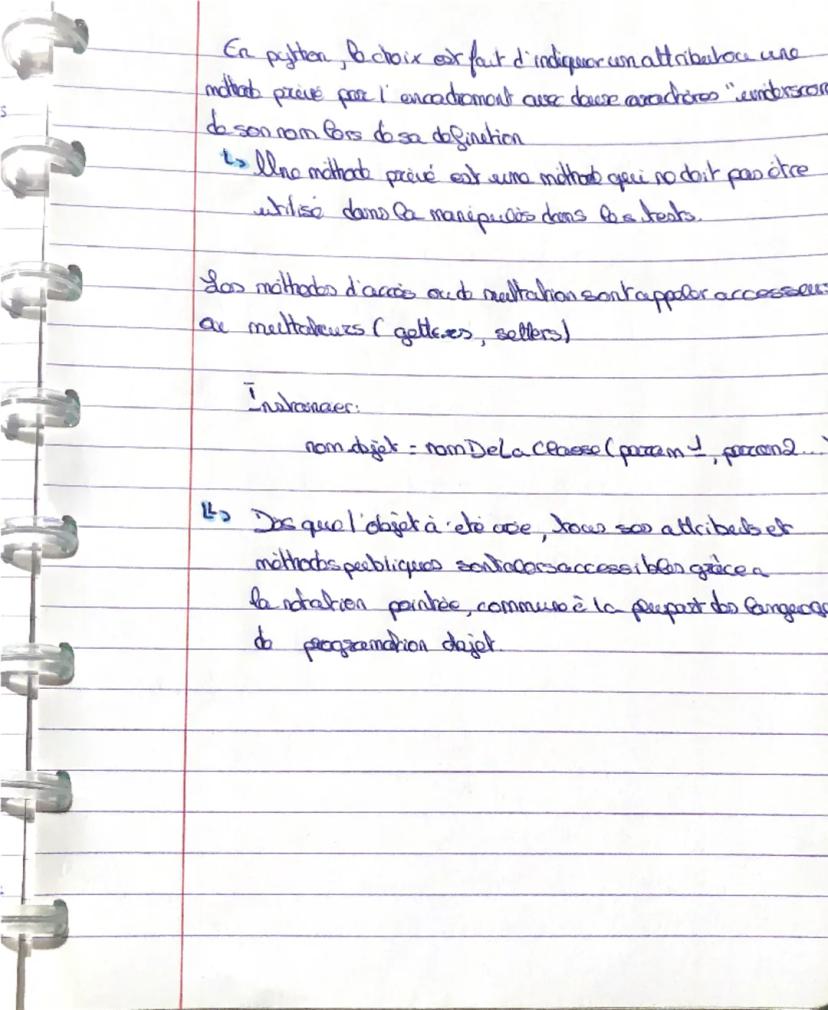 En python, le choix est fait d'indiquer un attribut ou une
méthode privé par l'encadrement avec deux caractères "underscore
de son nom lors de sa définition
↳ Une méthode privé est une méthode qui ne doit pas être
utilisé dans la manipulés dans les tests.
Les méthodes d'accès ou de mutation sont appeler accesseurs
ou mutateurs (getters, setters)
Instancier:
nom objet = nomDeLaClasse (param 1, param2...)
↳ Dès que l'objet à été crée, tous ses attributs et
méthodes publiques sont alors accessibles grâce a
la notation pointée, commune à la plupart des langages
de programation objet.